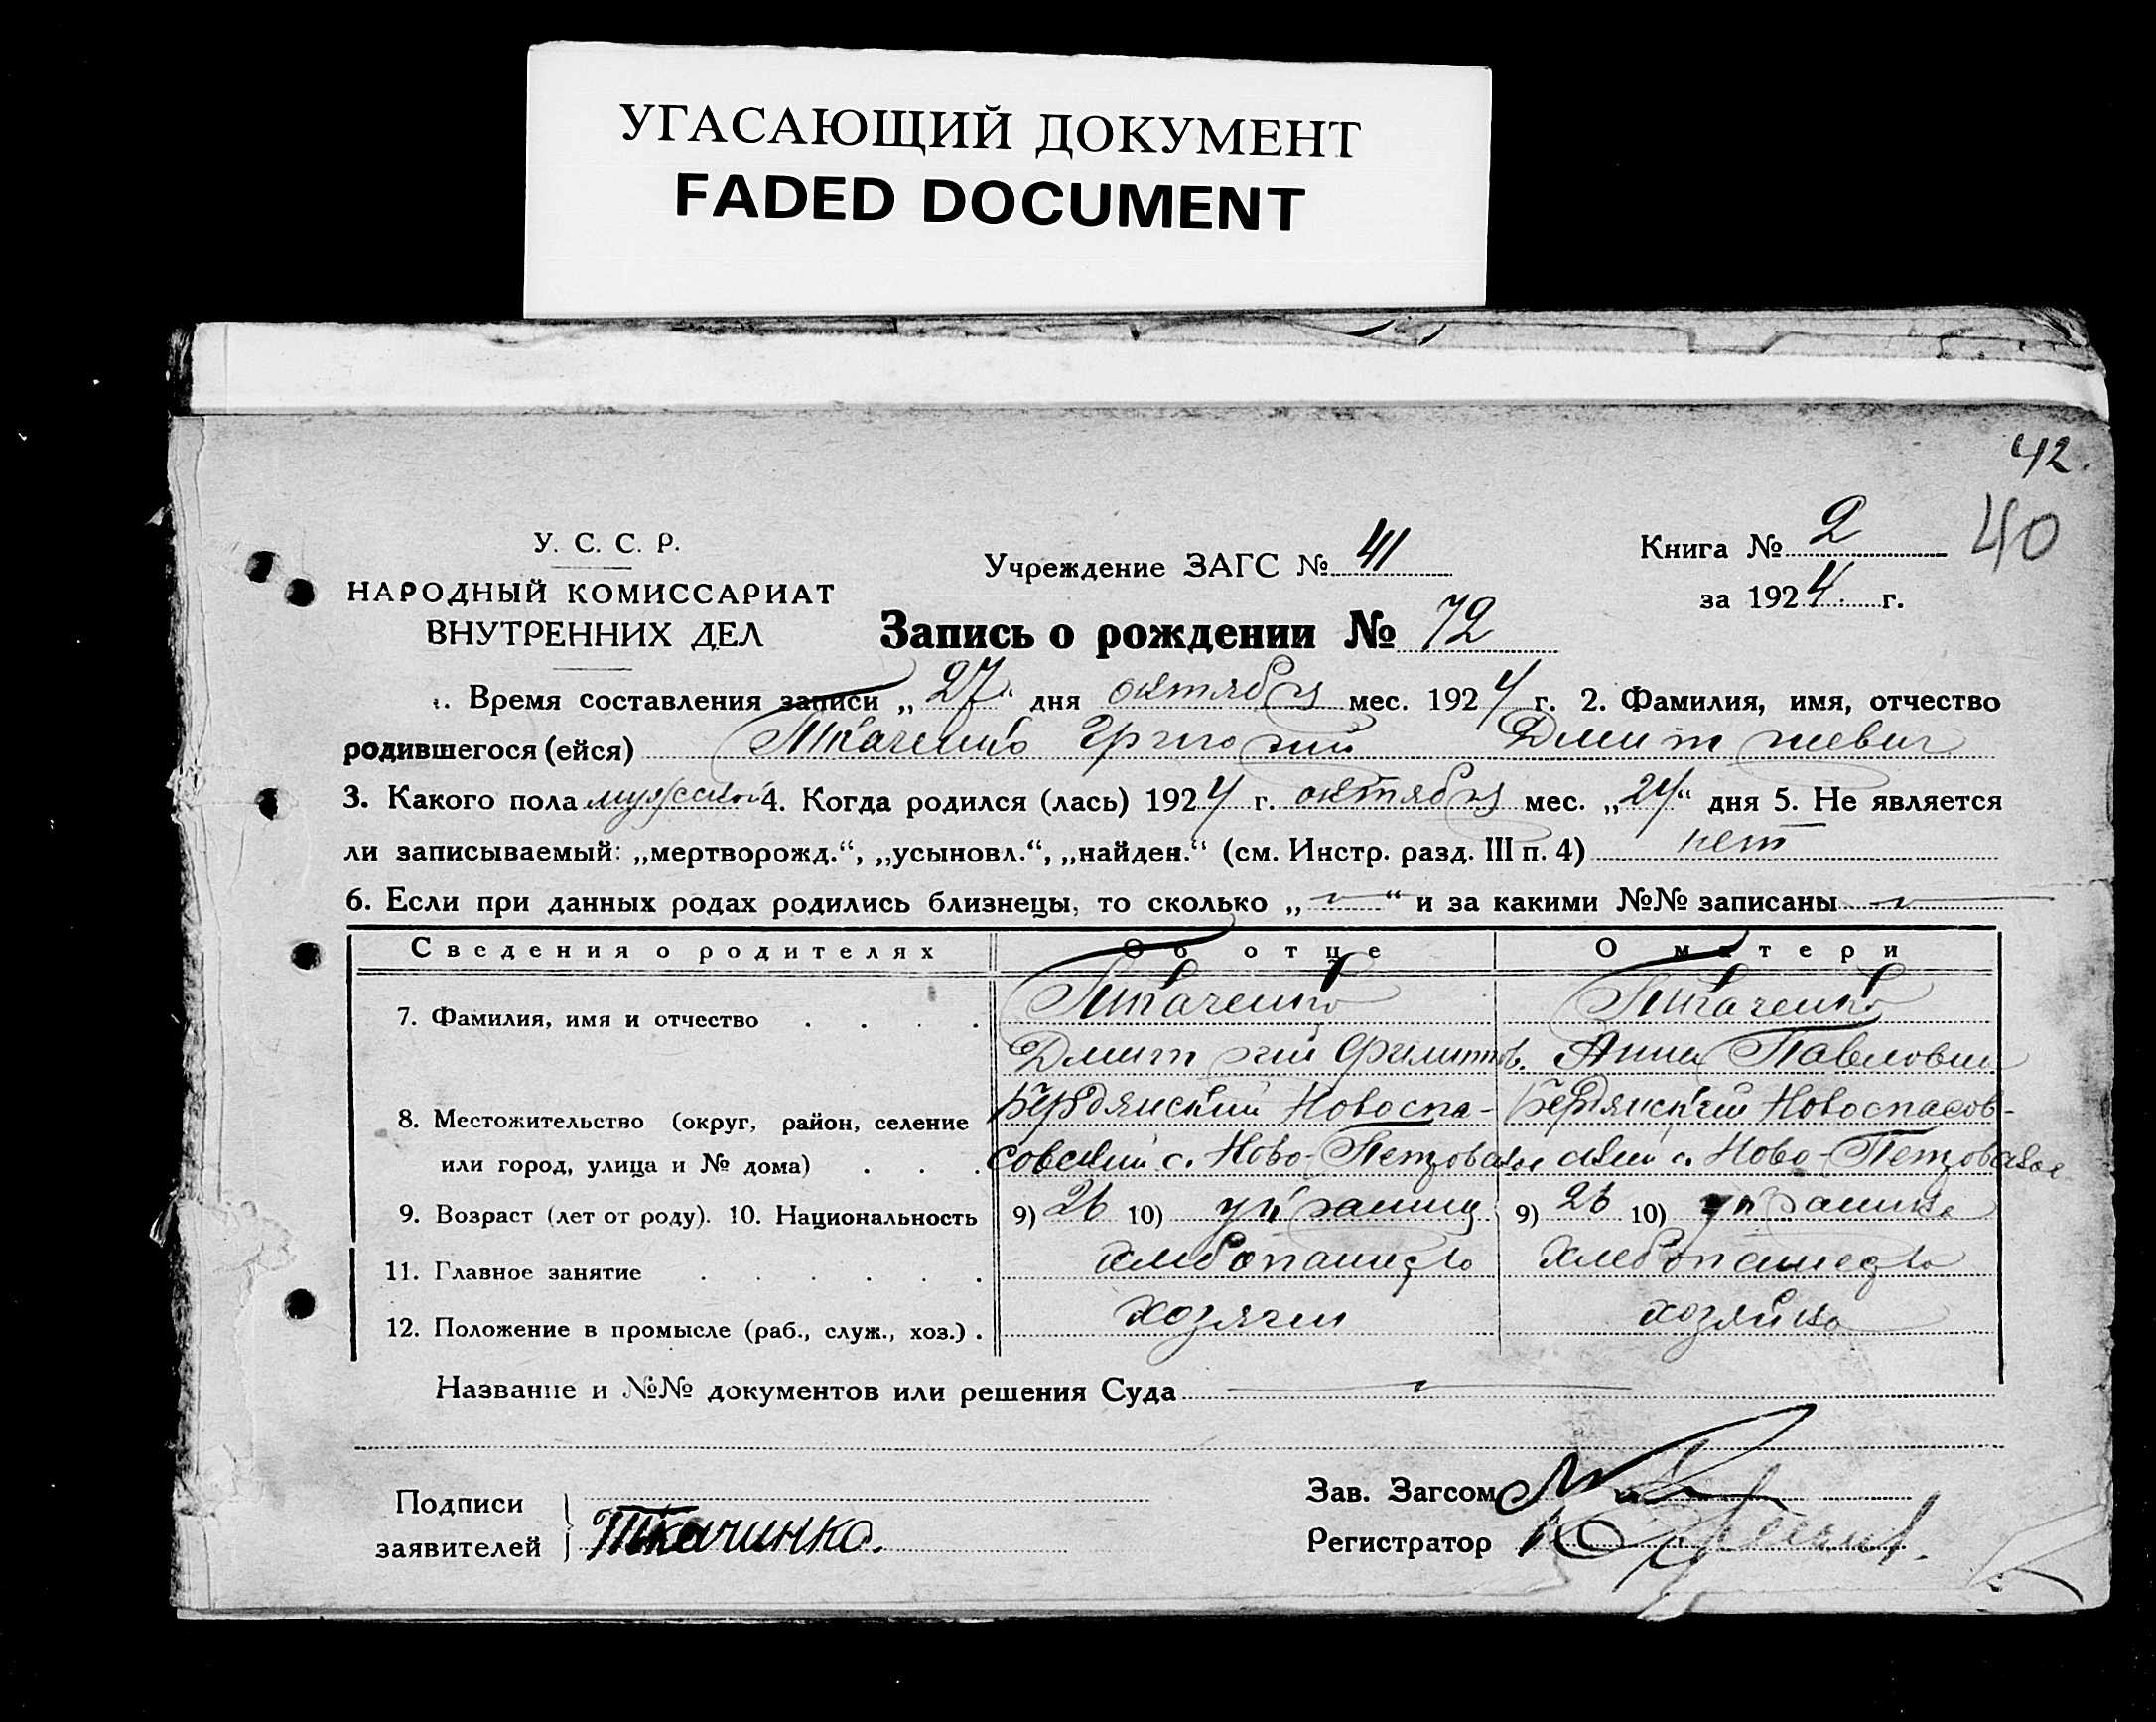 УГАСАЮЩИЙ ДОКУМЕНТ
FADED DOCUMENT
42.
40
У. С. С. Р.
НАРОДНЫЙ КОМИССАРИАТ
ВНУТРЕННИХ ДЕЛ
Учреждение ЗАГС № 41
Книга № 2
за 1924 г.
Запись о рождении № 72
1. Время составления записи „27“ дня октября мес. 1924 г. 2. Фамилия, имя, отчество
родившегося (ейся) Ткаченко Григорий Дмитриевич
3. Какого пола мужской 4. Когда родился (лась) 1924 г. октября мес. „24“ дня 5. Не является
ли записываемый: „мертворожд.“, „усыновл.“, „найден.“ (см. Инстр. разд. III п. 4) нет
6. Если при данных родах родились близнецы, то сколько „ “ и за какими №№ записаны
Сведения о родителях Об отце О матери
7. Фамилия, имя и отчество Ткаченко Ткаченко
Дмитрий Филиппов. Анна Павловна
8. Местожительство (округ, район, селение Бердянский Новоспа- Бердянский Новоспасов-
или город, улица и № дома) совский с. Ново-Петровское ский с. Ново-Петровское
9. Возраст (лет от роду). 10. Национальность 9) 26 10) украинец 9) 26 10) украинка
11. Главное занятие хлебопашество хлебопашество
12. Положение в промысле (раб., служ., хоз.) хозяин хозяйка
Название и №№ документов или решения Суда
Подписи заявителей Ткачинко.
Зав. Загсом
Регистратор